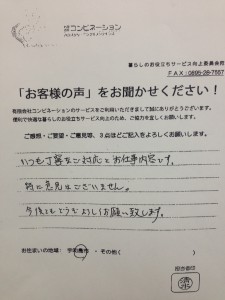 コンビネーション
暮らしのお役立ちサービス向上委員会宛
FAX:0895-28-7557
「お客様の声」をお聞かせください！
有限会社コンビネーションのサービスをご利用いただきまして誠にありがとうございます。
便利で快適な暮らしのお役立ちサービス向上のため、ご協力を宜しくお願いします。
ご感想・ご要望・ご意見等、3点ほどご記入をよろしくお願いします。
いつも丁寧なご対応とお仕事内容です。
特に意見はございません。
今後ともどうぞよろしくお願い致します。
お住まいの地域: 宇和島市 ・その他( )
担当者印